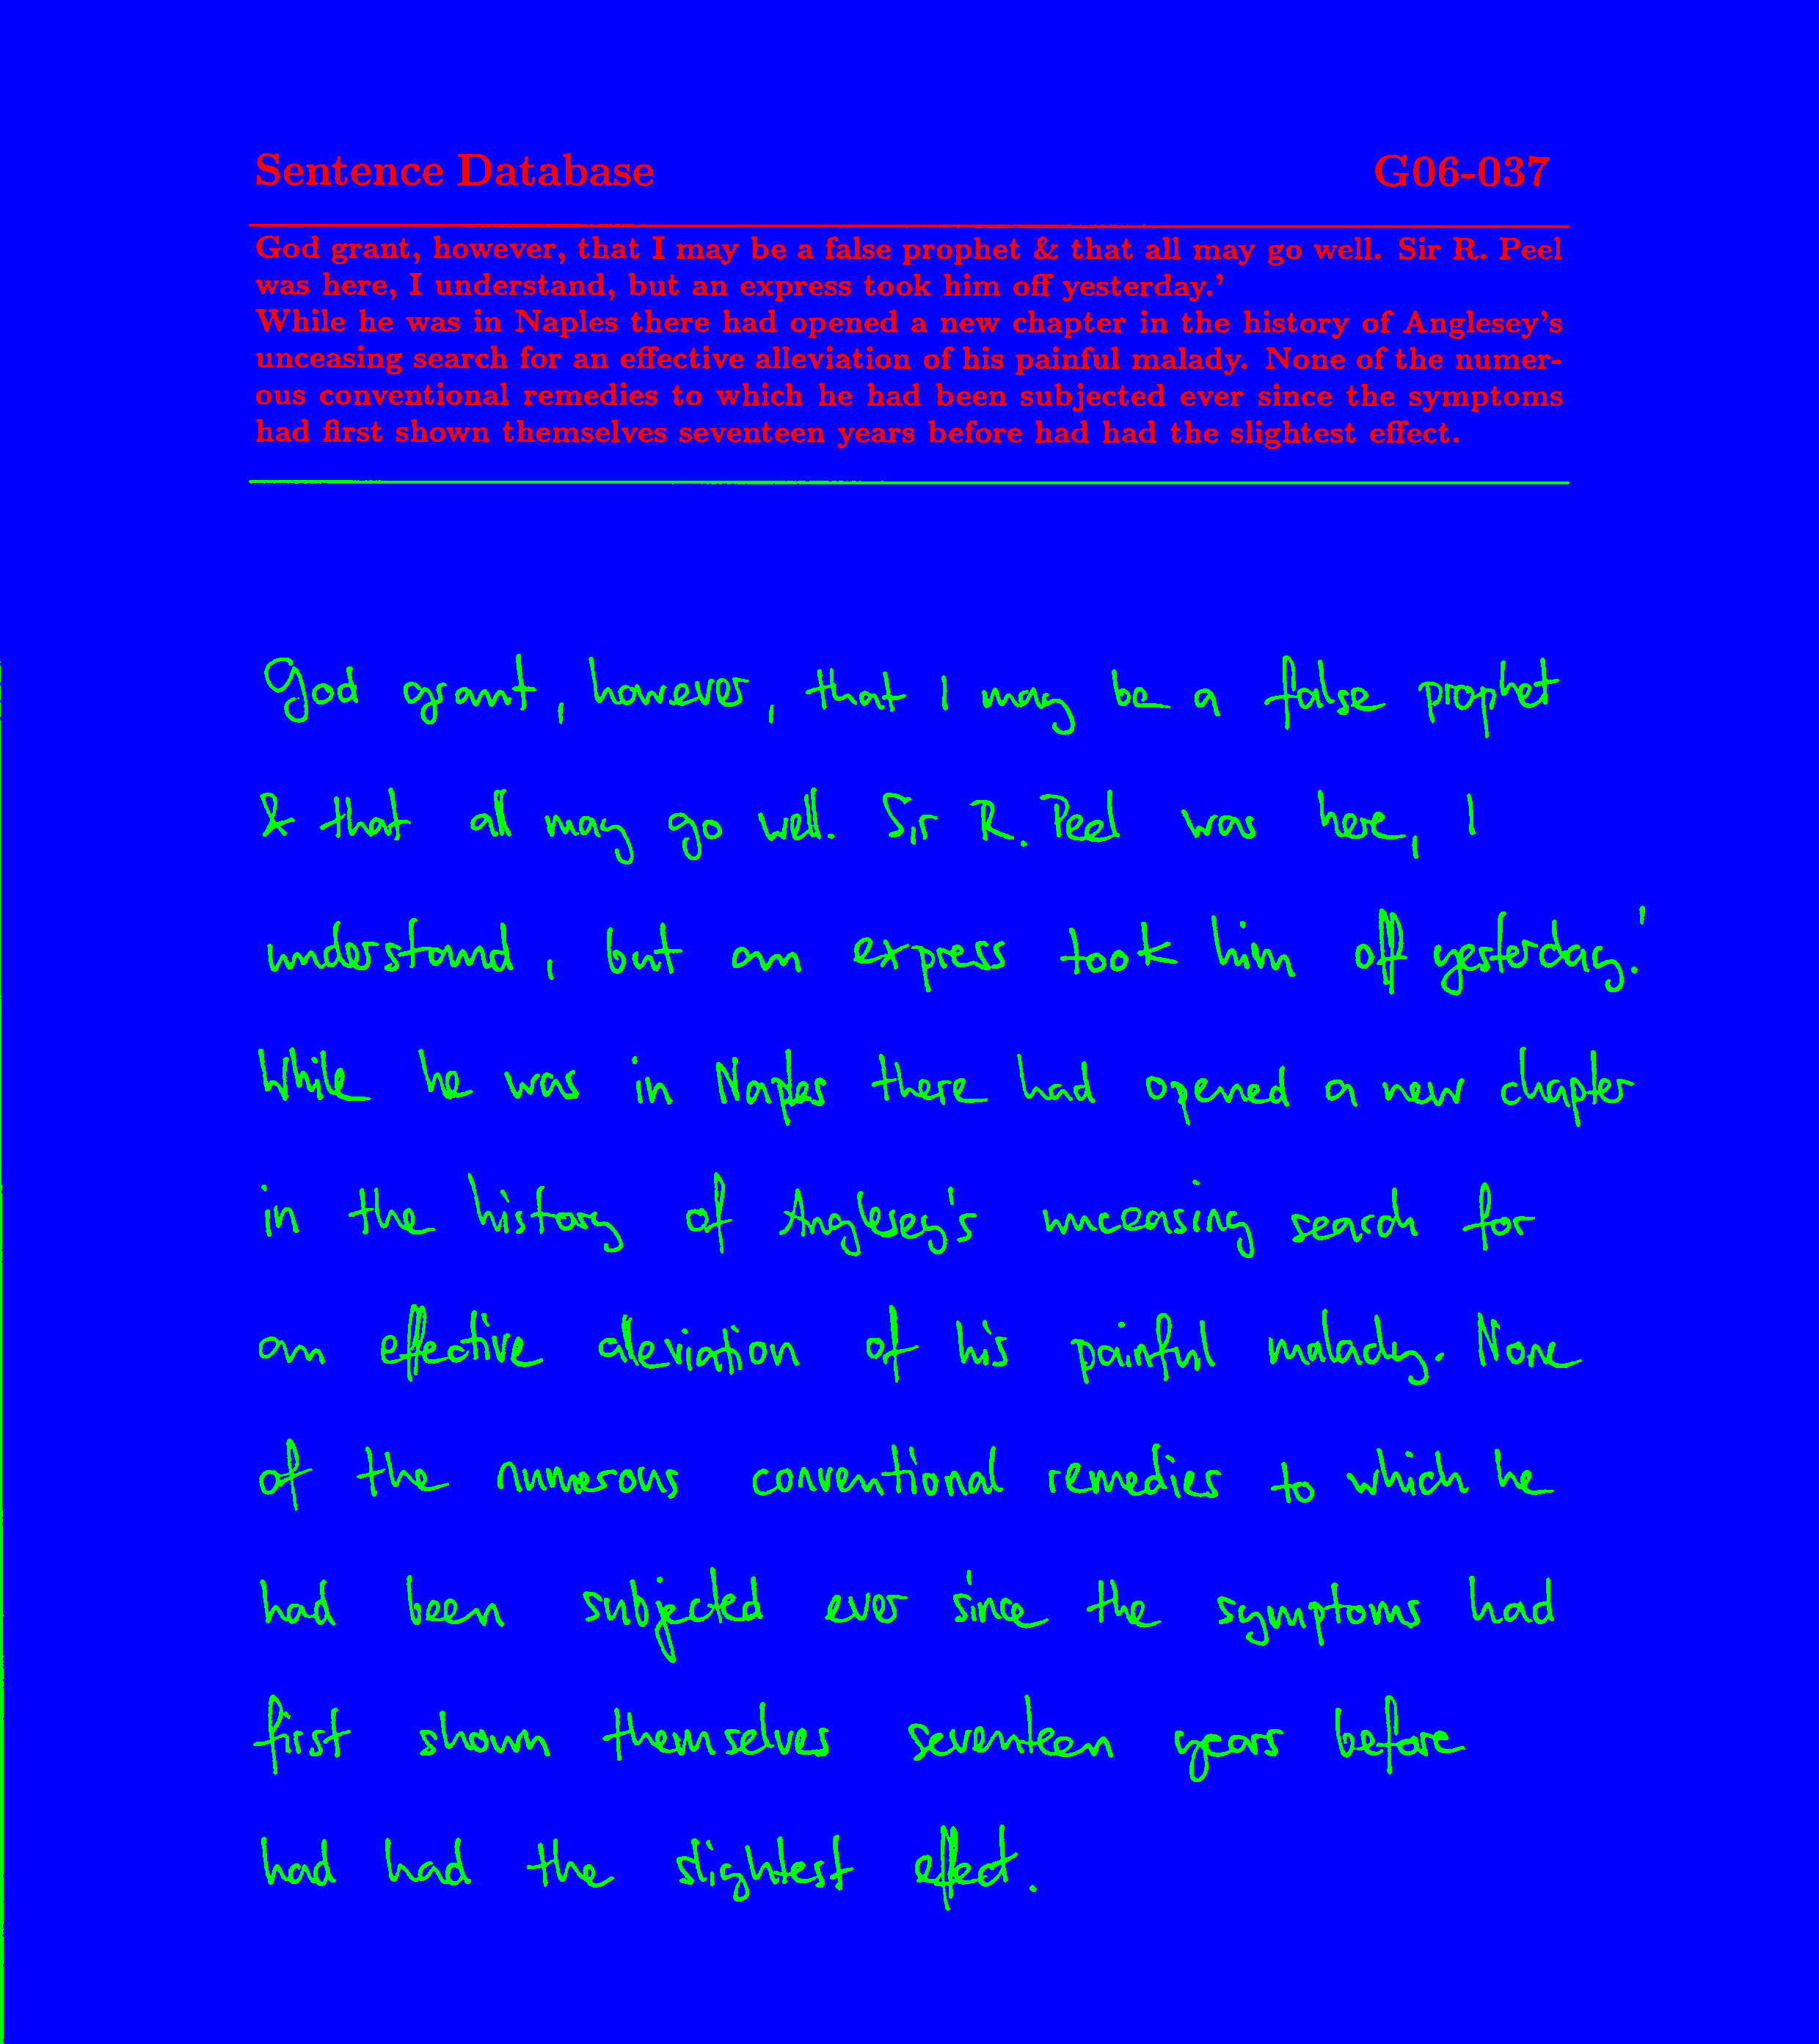 Sentence Database G06-037
God grant, however, that I may be a false prophet & that all may go well. Sir R. Peel
was here, I understand, but an express took him off yesterday.’
While he was in Naples there had opened a new chapter in the history of Anglesey’s
unceasing search for an effective alleviation of his painful malady. None of the numer-
ous conventional remedies to which he had been subjected ever since the symptoms
had first shown themselves seventeen years before had had the slightest effect.
God grant, however, that I may be a false prophet
& that all may go well. Sir R. Peel was here, I
understand, but an express took him off yesterday.'
While he was in Naples there had opened a new chapter
in the history of Anglesey's unceasing search for
an effective alleviation of his painful malady. None
of the numerous conventional remedies to which he
had been subjected ever since the symptoms had
first shown themselves seventeen years before
had had the slightest effect.